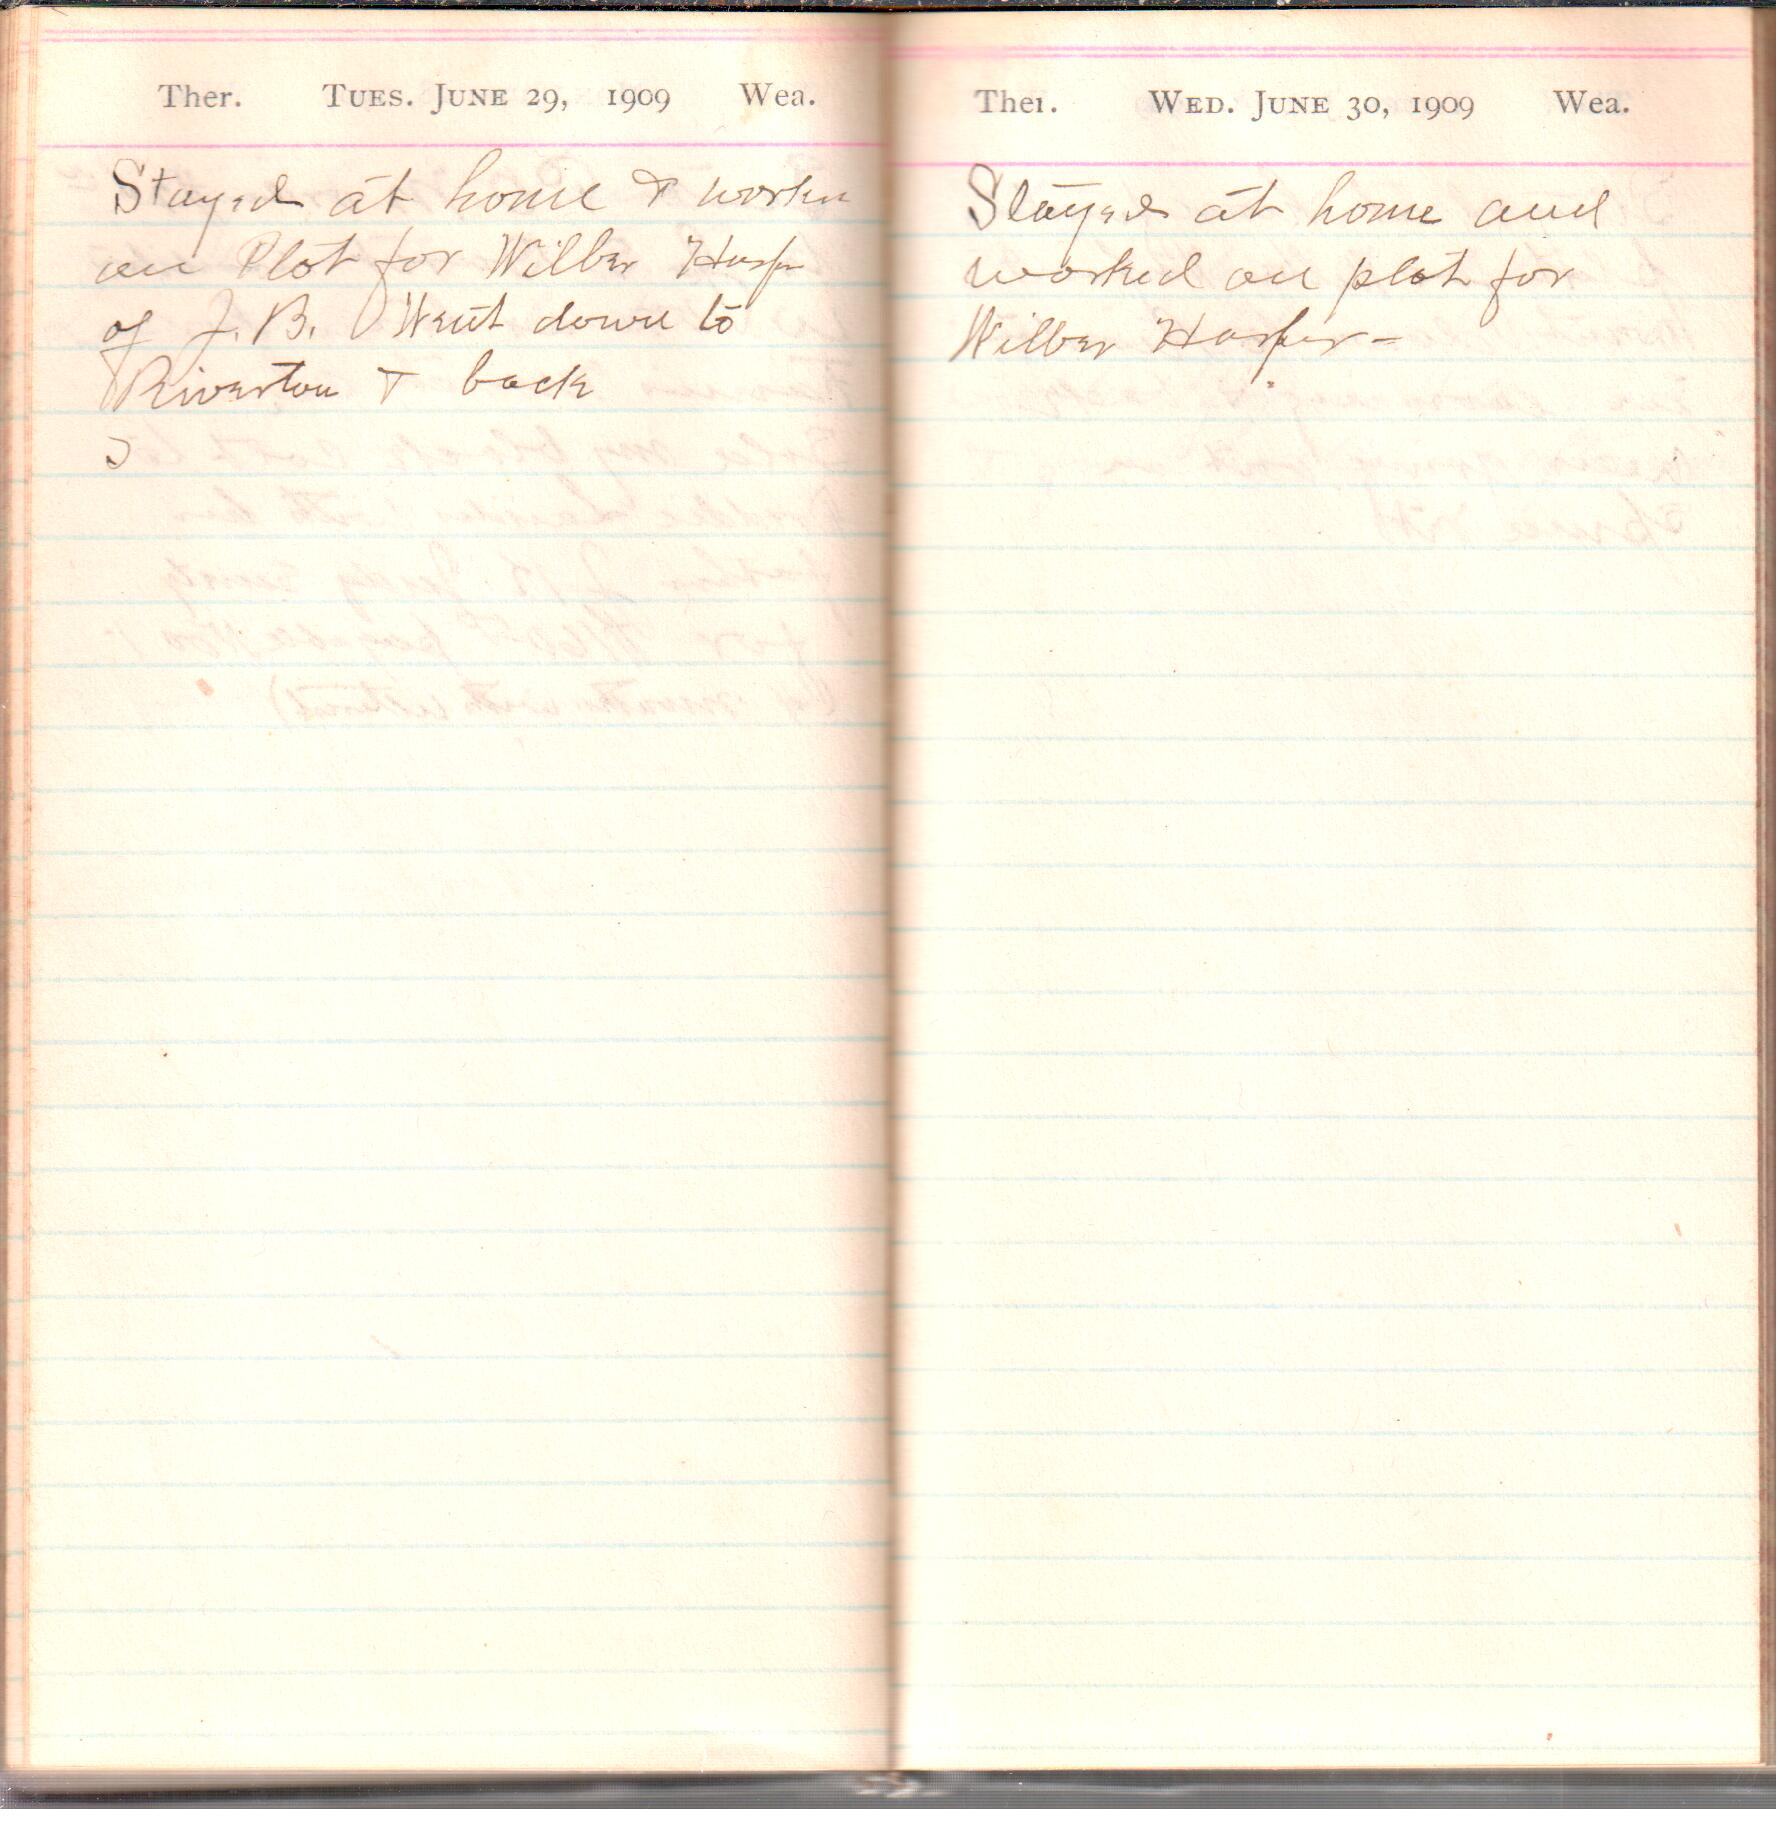 Ther. TUES. JUNE 29, 1909 Wea.
Stayed at home & worken
on Plot for Wilber Harp
of J. B. Went down to
Riverton & back
Ther. WED. JUNE 30, 1909 Wea.
Stayed at home and
worked on plot for
Wilber Harper-